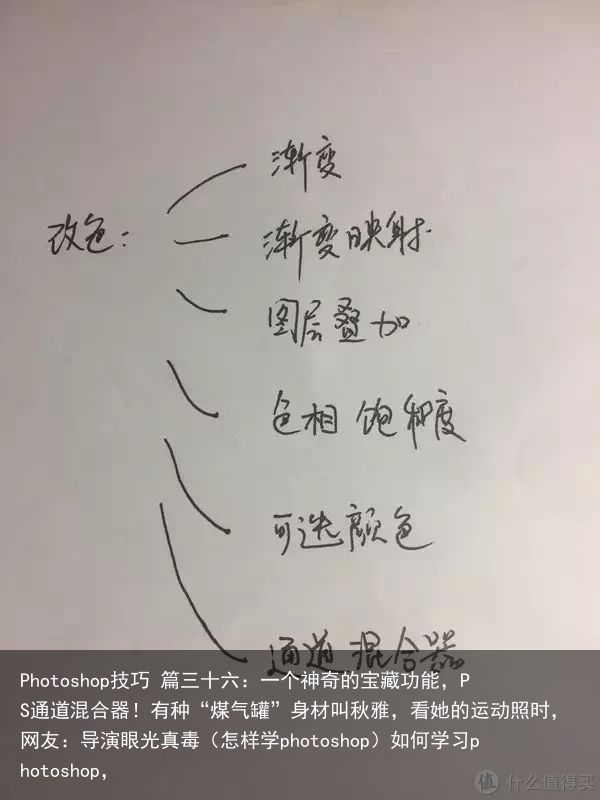 渐变
改色：
渐变映射
图层叠加
色相 饱和度
可选颜色
通道混合器
Photoshop技巧 篇三十六：一个神奇的宝藏功能，P
S通道混合器！有种“煤气罐”身材叫秋雅，看她的运动照时，
网友：导演眼光真毒（怎样学photoshop）如何学习p
hotoshop，
值 什么值得买